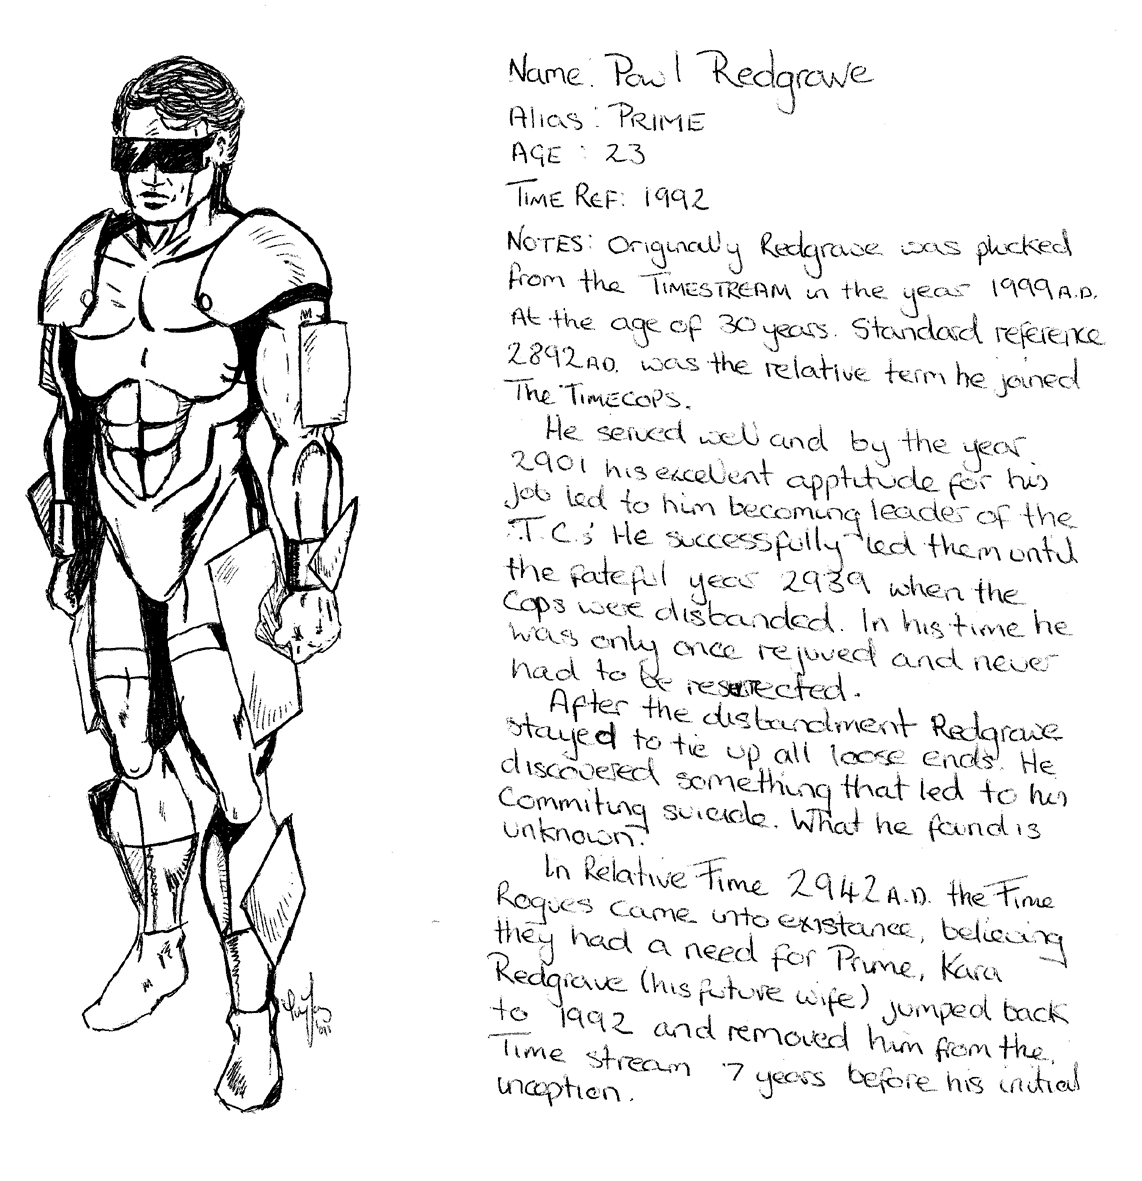 Name: Pawl Redgrave
Alias: PRIME
AGE: 23
TIME REF: 1992
NOTES: Originally Redgrave was plucked
from the TIMESTREAM in the year 1999 A.D.
At the age of 30 years. Standard reference
2892 AD. was the relative term he joined
The TIMECOPS.
He served well and by the year
2901 his excellent apptitude for his
job led to him becoming leader of the
'T.C.s' He successfully led them until
the fateful year 2939 when the
Cops were disbanded. In his time he
was only once rejuved and never
had to be resurrected.
After the disbandment Redgrave
stayed to tie up all loose ends. He
discovered something that led to his
Commiting suicide. What he found is
unknown.
In Relative Time 2942 A.D. the Time
Rogues came into existance, believing
they had a need for Prime, Kara
Redgrave (his future wife) jumped back
to 1992 and removed him from the
Time stream 7 years before his initial
inception.